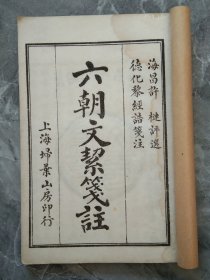 海昌許槤評選
德化黎經誥箋注
六朝文絜箋註
上海埽葉山房印行